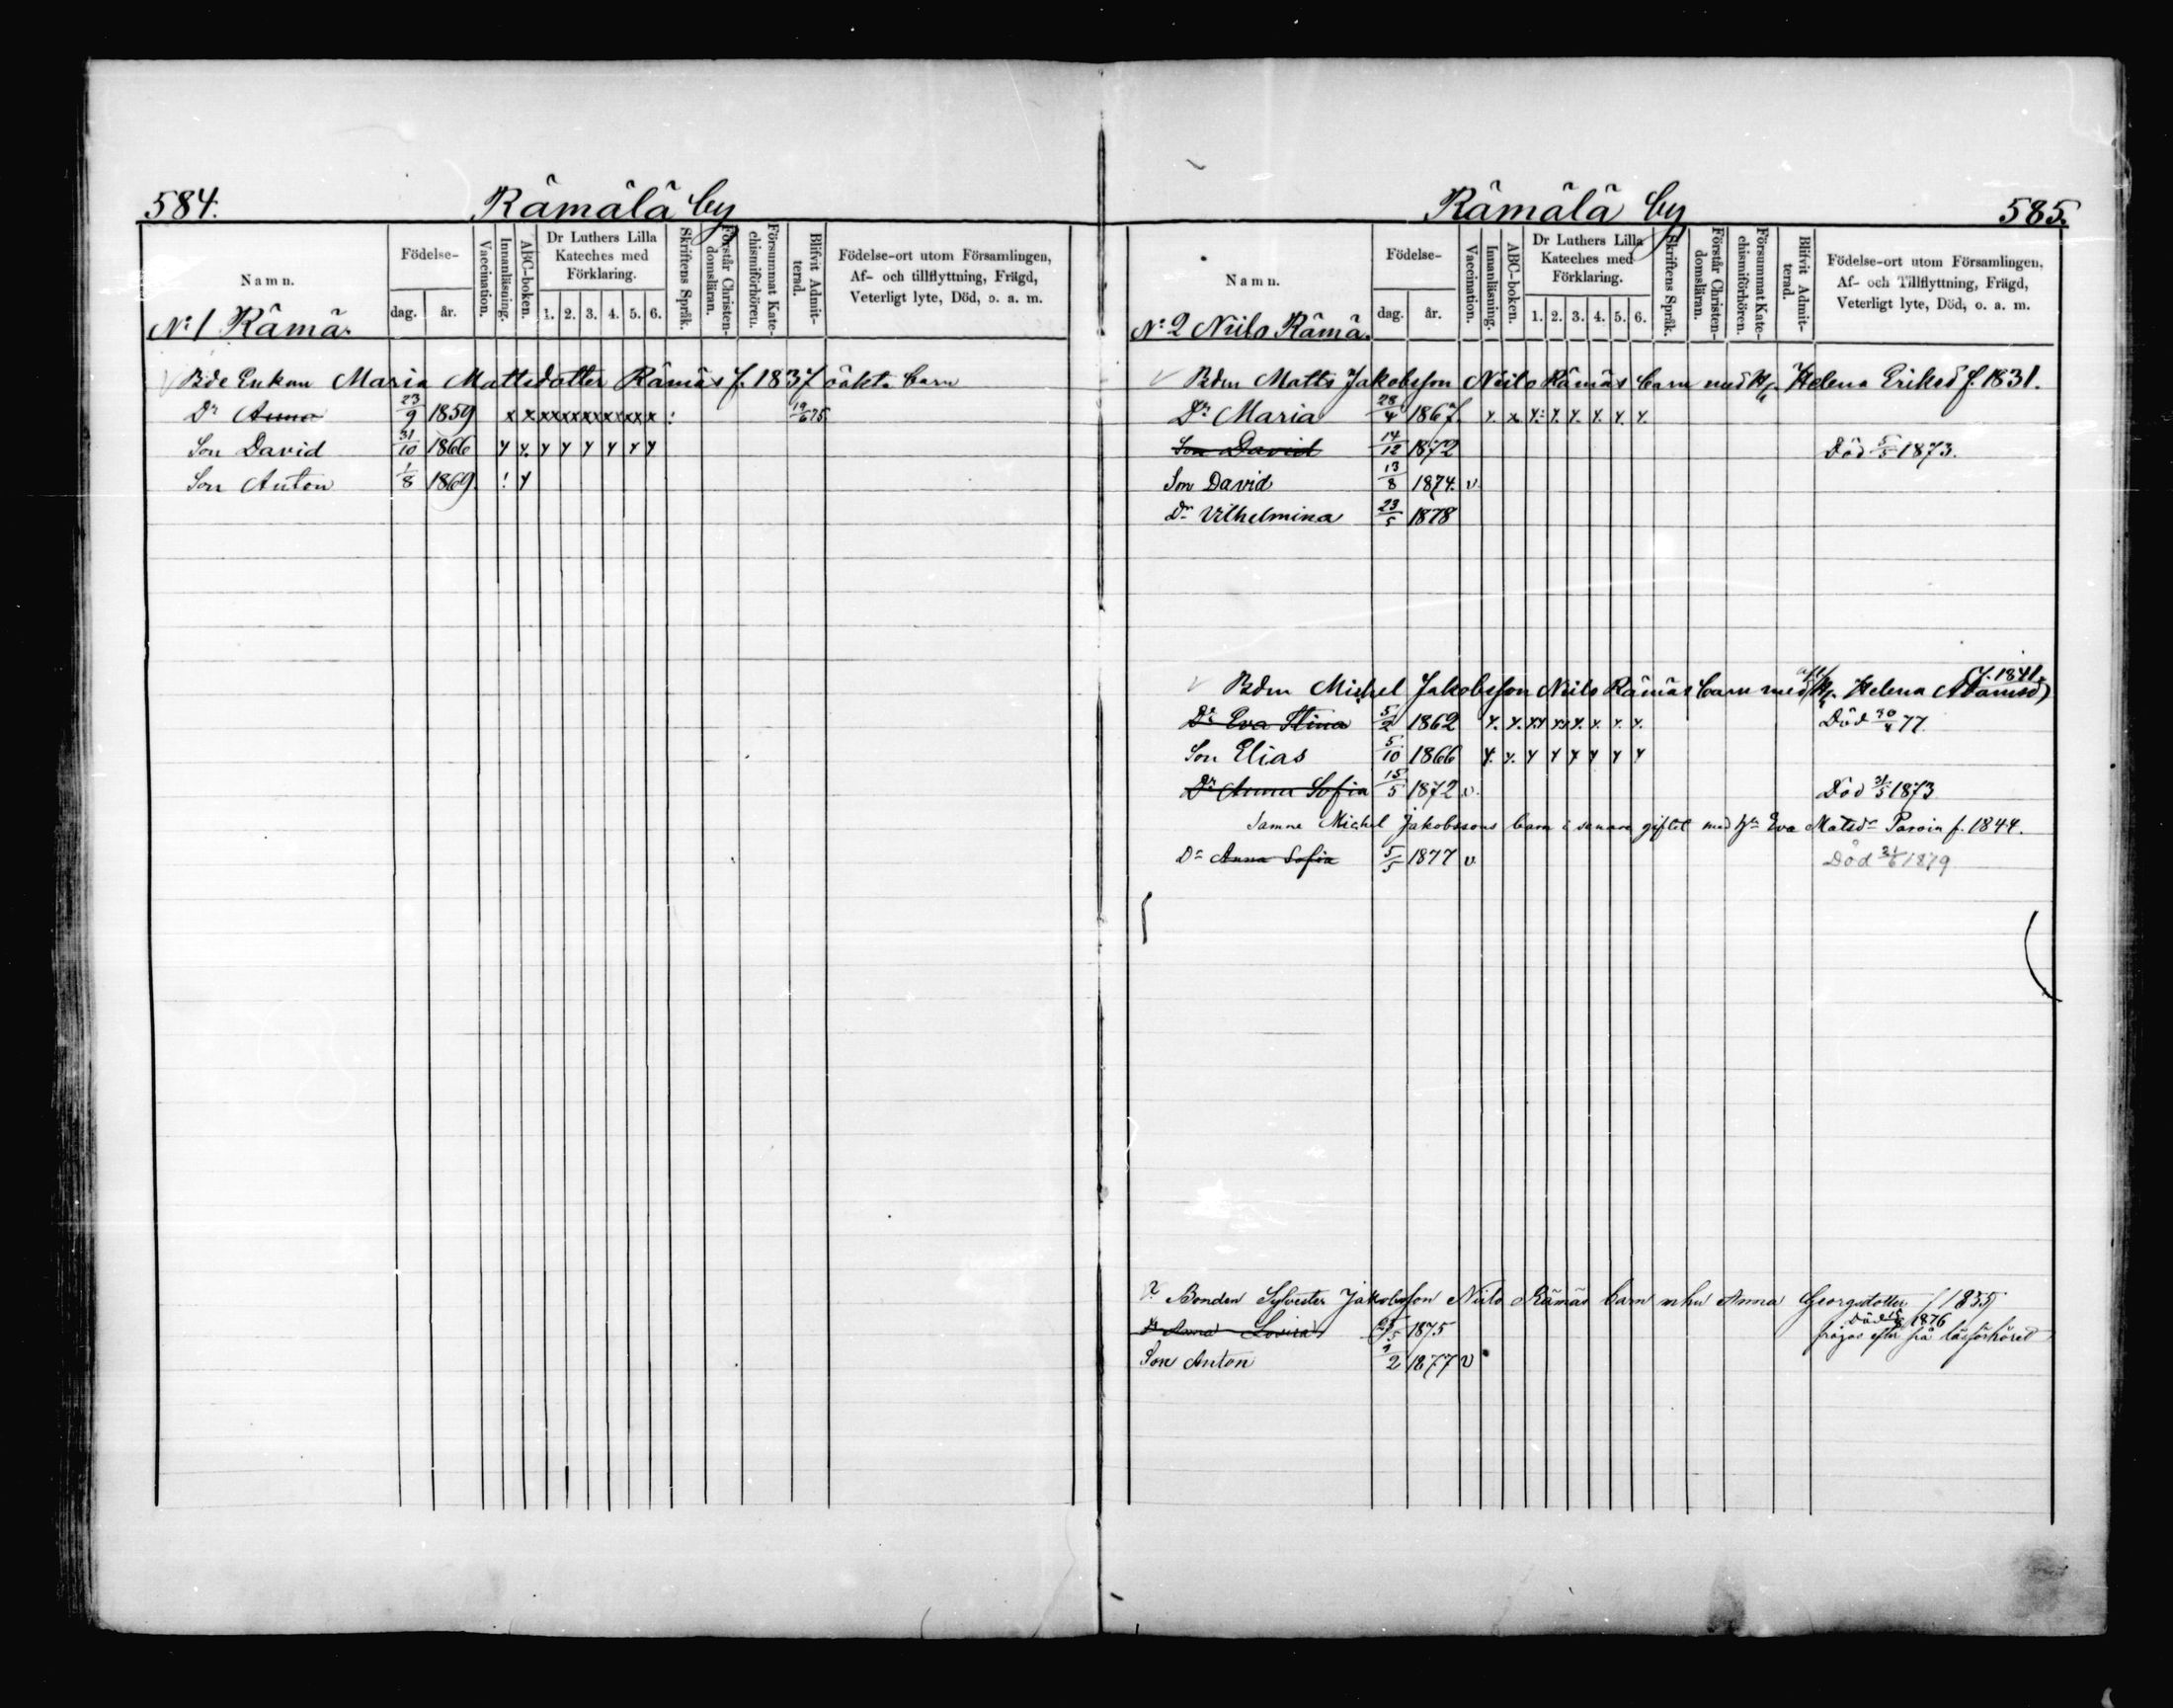 584. Rämälä by
Namn.
Födelse-
dag. år.
Vaccination.
Innanläsning.
ABC-boken.
Dr Luthers Lilla Kateches med Förklaring.
1. 2. 3. 4. 5. 6.
Skriftens Språk.
Förstår Christen-domsläran.
Försummat Kate-chismiförhören.
Blifvit Admit-terad.
Födelse-ort utom Församlingen, Af- och tillflyttning, Frägd, Veterligt lyte, Död, o. a. m.
No 1 Rämä.
Bde Enkan Maria Mattsdotter Rämäs f. 1837 oäkta barn
Dr Anna 23/9 1859 x x xx xx xx xx xx x : 19/6 75
Son David 31/10 1866 y y. y y y y y y
Son Anton 1/8 1869 ! y
Rämälä by 585.
Namn.
Födelse-
dag. år.
Vaccination.
Innanläsning.
ABC-boken.
Dr Luthers Lilla Kateches med Förklaring.
1. 2. 3. 4. 5. 6.
Skriftens Språk.
Förstår Christen-domsläran.
Försummat Kate-chismiförhören.
Blifvit Admit-terad.
Födelse-ort utom Församlingen, Af- och Tillflyttning, Frägd, Veterligt lyte, Död, o. a. m.
No 2 Niilo Rämä.
Bdn Matts Jakobsson Niilo Rämäs barn med Helena Eriksd f. 1831.
Dr Maria 28/4 1867. y. x y: y. y. y. y. y.
Son David 14/12 1872 Död 5/5 1873.
Son David 13/8 1874. v.
Dr Vilhelmina 23/5 1878
Bdn Michel Jakobsson Niilo Rämäs barn med Helena Adamsd f. 1841.
Dr Eva Stina 5/2 1862 y. y. yy yy y. y. y. y. Död 30/4 77.
Son Elias 5/10 1866 y. y. y y y y y y
Dr Anna Sofia 15/5 1872 v. Död 31/5 1873
Samma Michel Jakobssons barn i senare giftet med Eva Matsdr f. 1844.
Dr Anna Sofia 5/5 1877 v Död 21/6 1879
Bonden Sylvester Jakobsson Niilo Rämäs barn mhu Anna Georgsdotter f 1835
Dr Anna Lovisa 1875 Död 1876
frågas efter på läsförhöret
Son Anton 2 1877 v